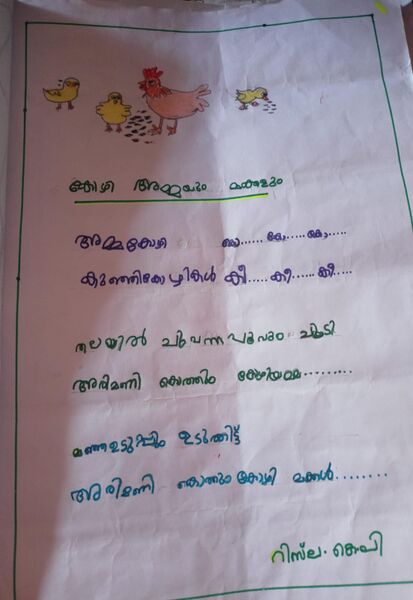 കോഴി അമ്മയും മക്കളും
അമ്മകോഴി കൊ...... കോ.... കോ.....
കുഞ്ഞികോഴികൾ കീ..... കീ.... കീ....
തലയിൽ ചുവന്നപൂവും ചൂടി
അരിമണി കൊത്തും കോഴിയമ്മ.........
മഞ്ഞഉടുപ്പും ഉടുത്തിട്ട്
അരിമണി കൊത്തും കോഴി മക്കൾ........
റിസ്‌ല. കെ പി